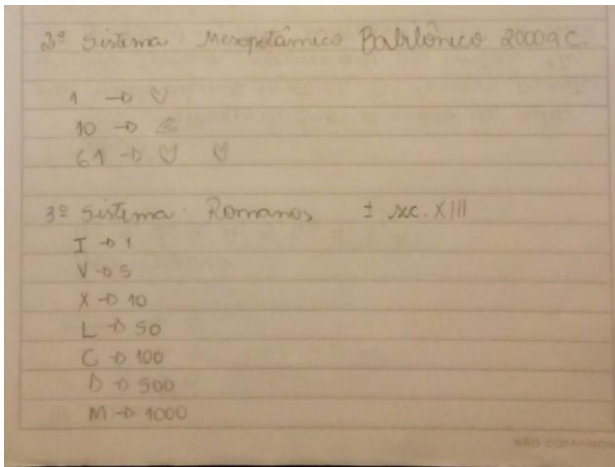 2º Sistema Mesopotâmico Babilônico 2000 a.C.
1 → 
10 → 
61 → 
3º Sistema Romanos ± sec. XIII
I → 1
V → 5
X → 10
L → 50
C → 100
D → 500
M → 1000